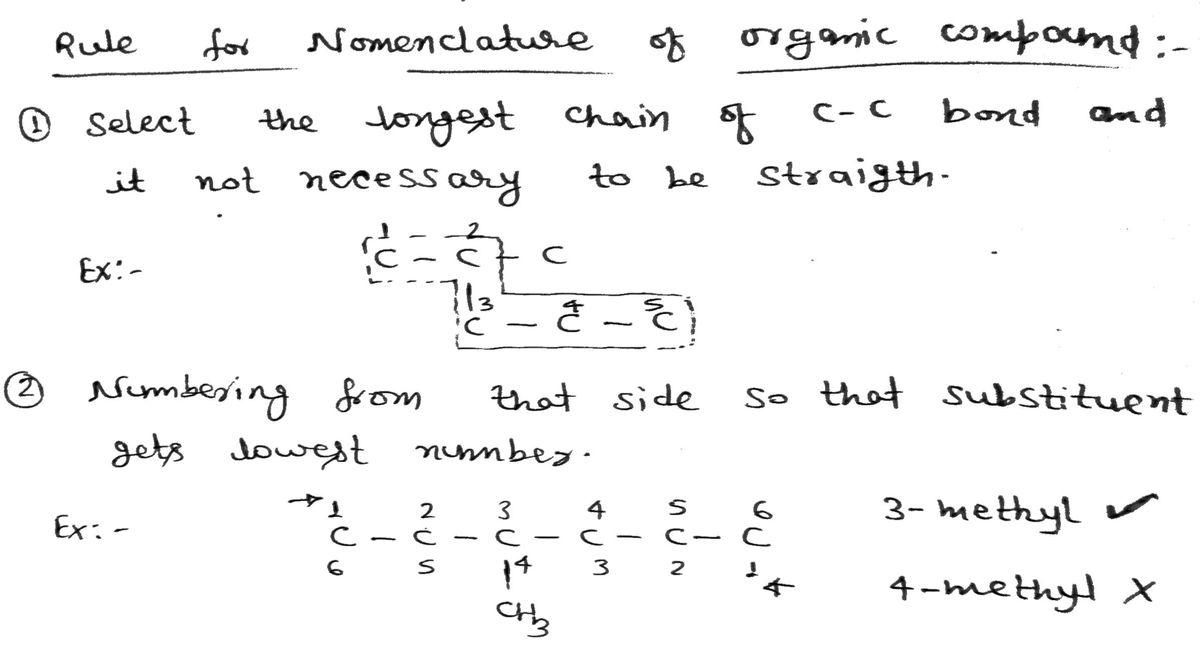 Rule for Nomenclature of organic compound :-
① Select the longest chain of C-C bond and
it not necessary to be straigth.
Ex:-
1 2
C - C - C
3 4 5
C - C - C
② Numbering from that side so that substituent
gets lowest number.
Ex:-
→1 2 3 4 5 6 3-methyl ✓
C - C - C - C - C - C
6 5 4 3 2 1← 4-methyl ×
CH3